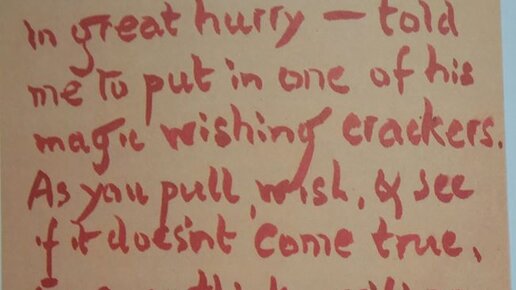 in great hurry — told
me to put in one of his
magic wishing crackers.
As you pull, wish, & see
if it does'nt come true.